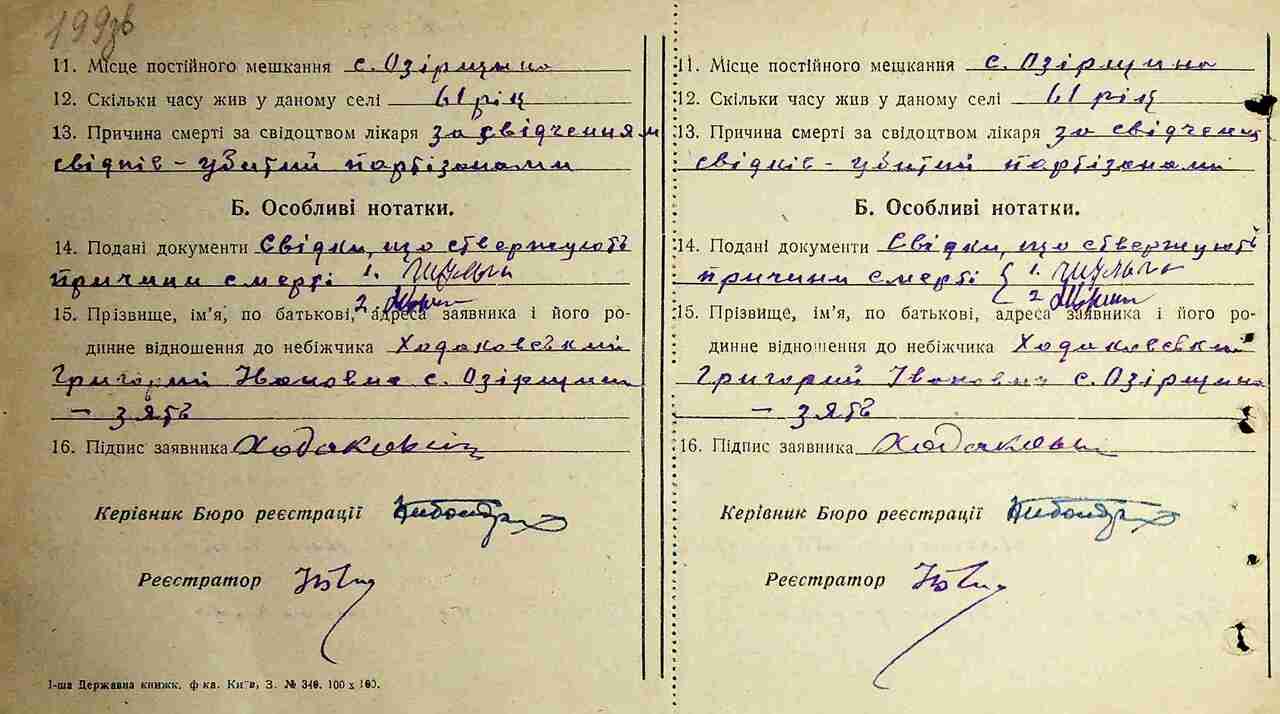 199зв
11. Місце постійного мешкання с. Озірщина
12. Скільки часу жив у даному селі 61 рік
13. Причина смерті за свідоцтвом лікаря за свідченням
свідків – убитий партізанами
Б. Особливі нотатки.
14. Подані документи Свідки, що ствержують
причини смерті 1.
2.
15. Прізвище, ім’я, по батькові, адреса заявника і його ро-
динне відношення до небіжчика Ходаковський
Григорий Іванович с. Озірщина
– зять
16. Підпис заявника Ходаковський
Керівник Бюро реєстрації
Реєстратор
1-ша Державна книжк. ф-ка. Київ, З. № 340. 100 x 100.
11. Місце постійного мешкання с. Озірщина
12. Скільки часу жив у даному селі 61 рік
13. Причина смерті за свідоцтвом лікаря за свідчен
свідків – убитий партізанами
Б. Особливі нотатки.
14. Подані документи Свідки, що ствержують
причини смерті 1.
2.
15. Прізвище, ім’я, по батькові, адреса заявника і його ро-
динне відношення до небіжчика Ходаковський
Григорий Іванович с. Озірщина
– зять
16. Підпис заявника
Керівник Бюро реєстрації
Реєстратор